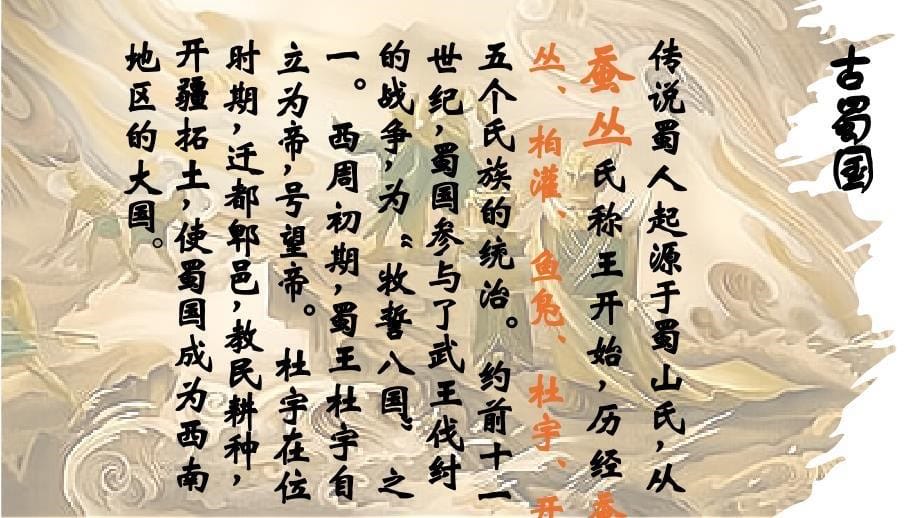 古蜀国
传说蜀人起源于蜀山氏，从
蚕丛氏称王开始，历经蚕
丛、柏灌、鱼凫、杜宇、开
五个氏族的统治。约前十一
世纪，蜀国参与了武王伐纣
的战争，为“牧誓八国”之
一。西周初期，蜀王杜宇自
立为帝，号望帝。杜宇在位
时期，迁都郫邑，教民耕种，
开疆拓土，使蜀国成为西南
地区的大国。